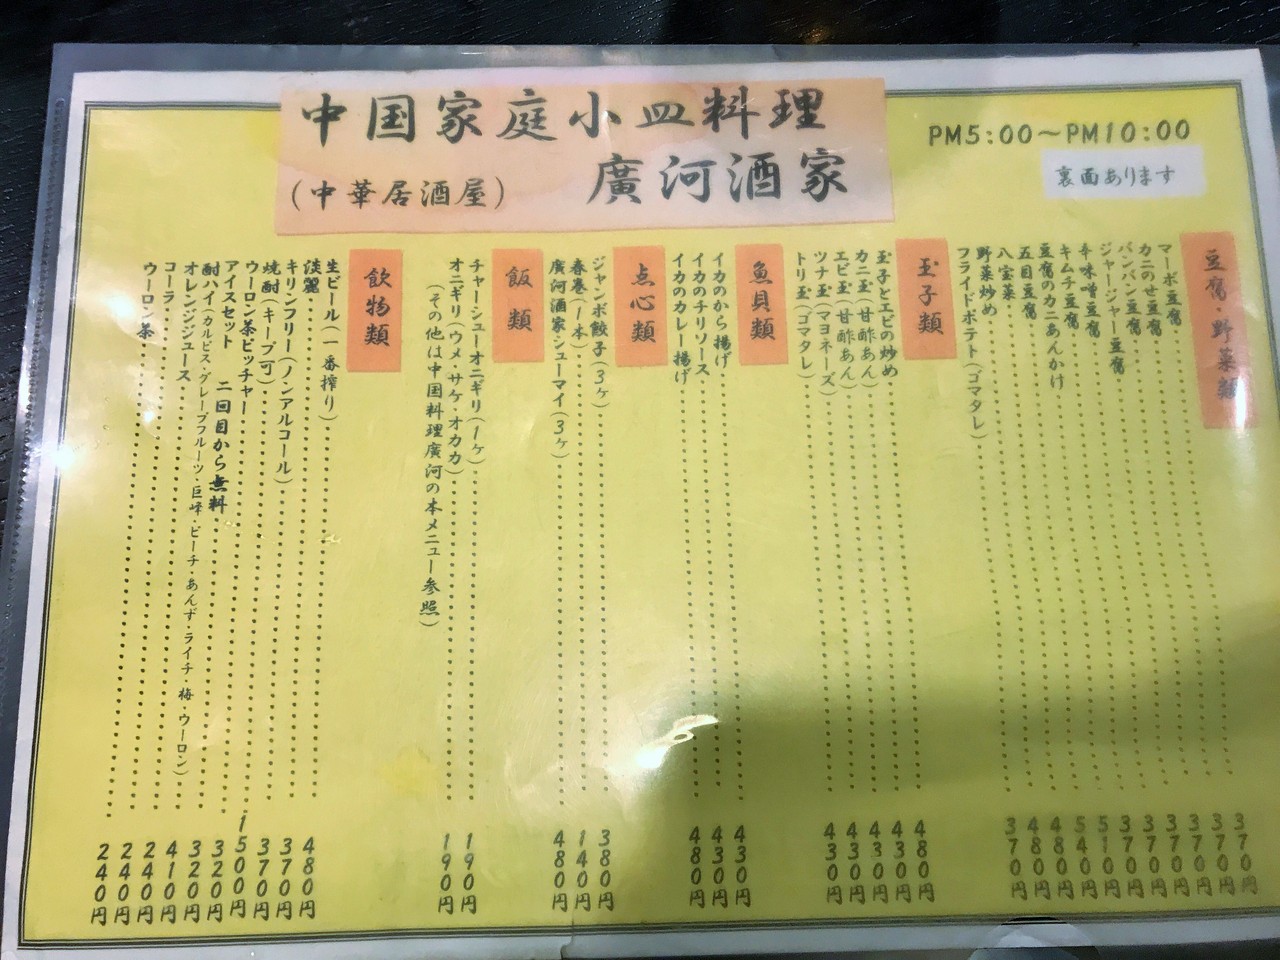 中国家庭小皿料理
(中華居酒屋) 廣河酒家
PM5:00～PM10:00
裏面あります
豆腐・野菜類
マーボ豆腐 370円
カニのせ豆腐 370円
バンバン豆腐 370円
ジャージャー豆腐 370円
辛味噌豆腐 370円
キムチ豆腐 370円
豆腐のカニあんかけ 510円
五目豆腐 540円
八宝菜 480円
野菜炒め 480円
フライドポテト(ゴマタレ) 370円
玉子類
玉子とエビの炒め 480円
カニ玉(甘酢あん) 430円
エビ玉(甘酢あん) 430円
ツナ玉(マヨネーズ) 430円
トリ玉(ゴマタレ) 430円
魚貝類
イカのから揚げ 430円
イカのチリソース 430円
イカのカレー揚げ 480円
点心類
ジャンボ餃子(3ヶ) 380円
春巻(1本) 140円
廣河酒家シューマイ(3ヶ) 480円
飯類
チャーシューオニギリ(1ヶ) 190円
オニギリ(ウメ・サケ・オカカ) 190円
(その他は中国料理廣河の本メニュー参照)
飲物類
生ビール(一番搾り) 480円
淡麗 370円
キリンフリー(ノンアルコール) 370円
焼酎(キープ可) 1500円
ウーロン茶ピッチャー 320円
アイスセット 二回目から無料 320円
酎ハイ(カルピス・グレープフルーツ・巨峰・ピーチ・あんず・ライチ・梅 ウーロン) 410円
オレンジジュース 240円
コーラ 240円
ウーロン茶 240円